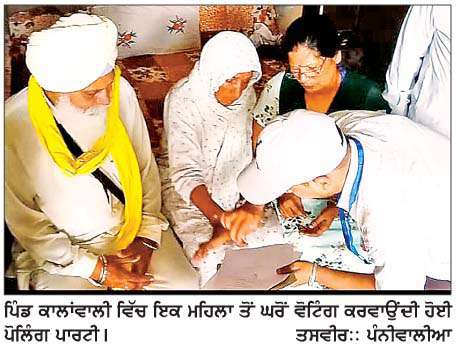 ਪਿੰਡ ਕਾਲਾਂਵਾਲੀ ਵਿੱਚ ਇਕ ਮਹਿਲਾ ਤੋਂ ਘਰੋਂ ਵੋਟਿੰਗ ਕਰਵਾਉਂਦੀ ਹੋਈ
ਪੋਲਿੰਗ ਪਾਰਟੀ। ਤਸਵੀਰ:: ਪੰਨੀਵਾਲੀਆ